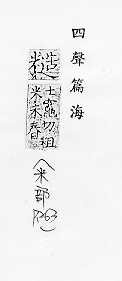 四聲篇海
糙
七竈切粗
米未舂
(米部
P.263)